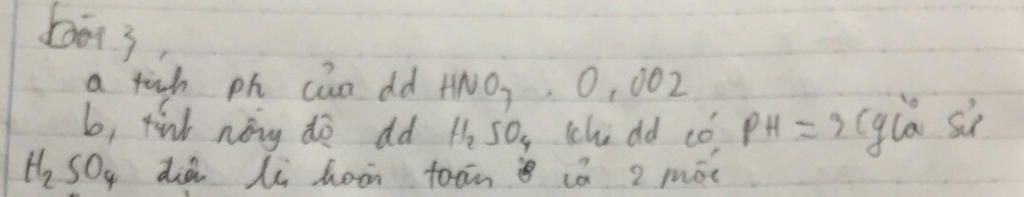 bài 3,
a tính ph của dd HNO3. 0,002
b, tính nồng độ dd H2SO4 khi dd có PH = 2 (giả sử
H2SO4 điện li hoàn toàn cả 2 nấc